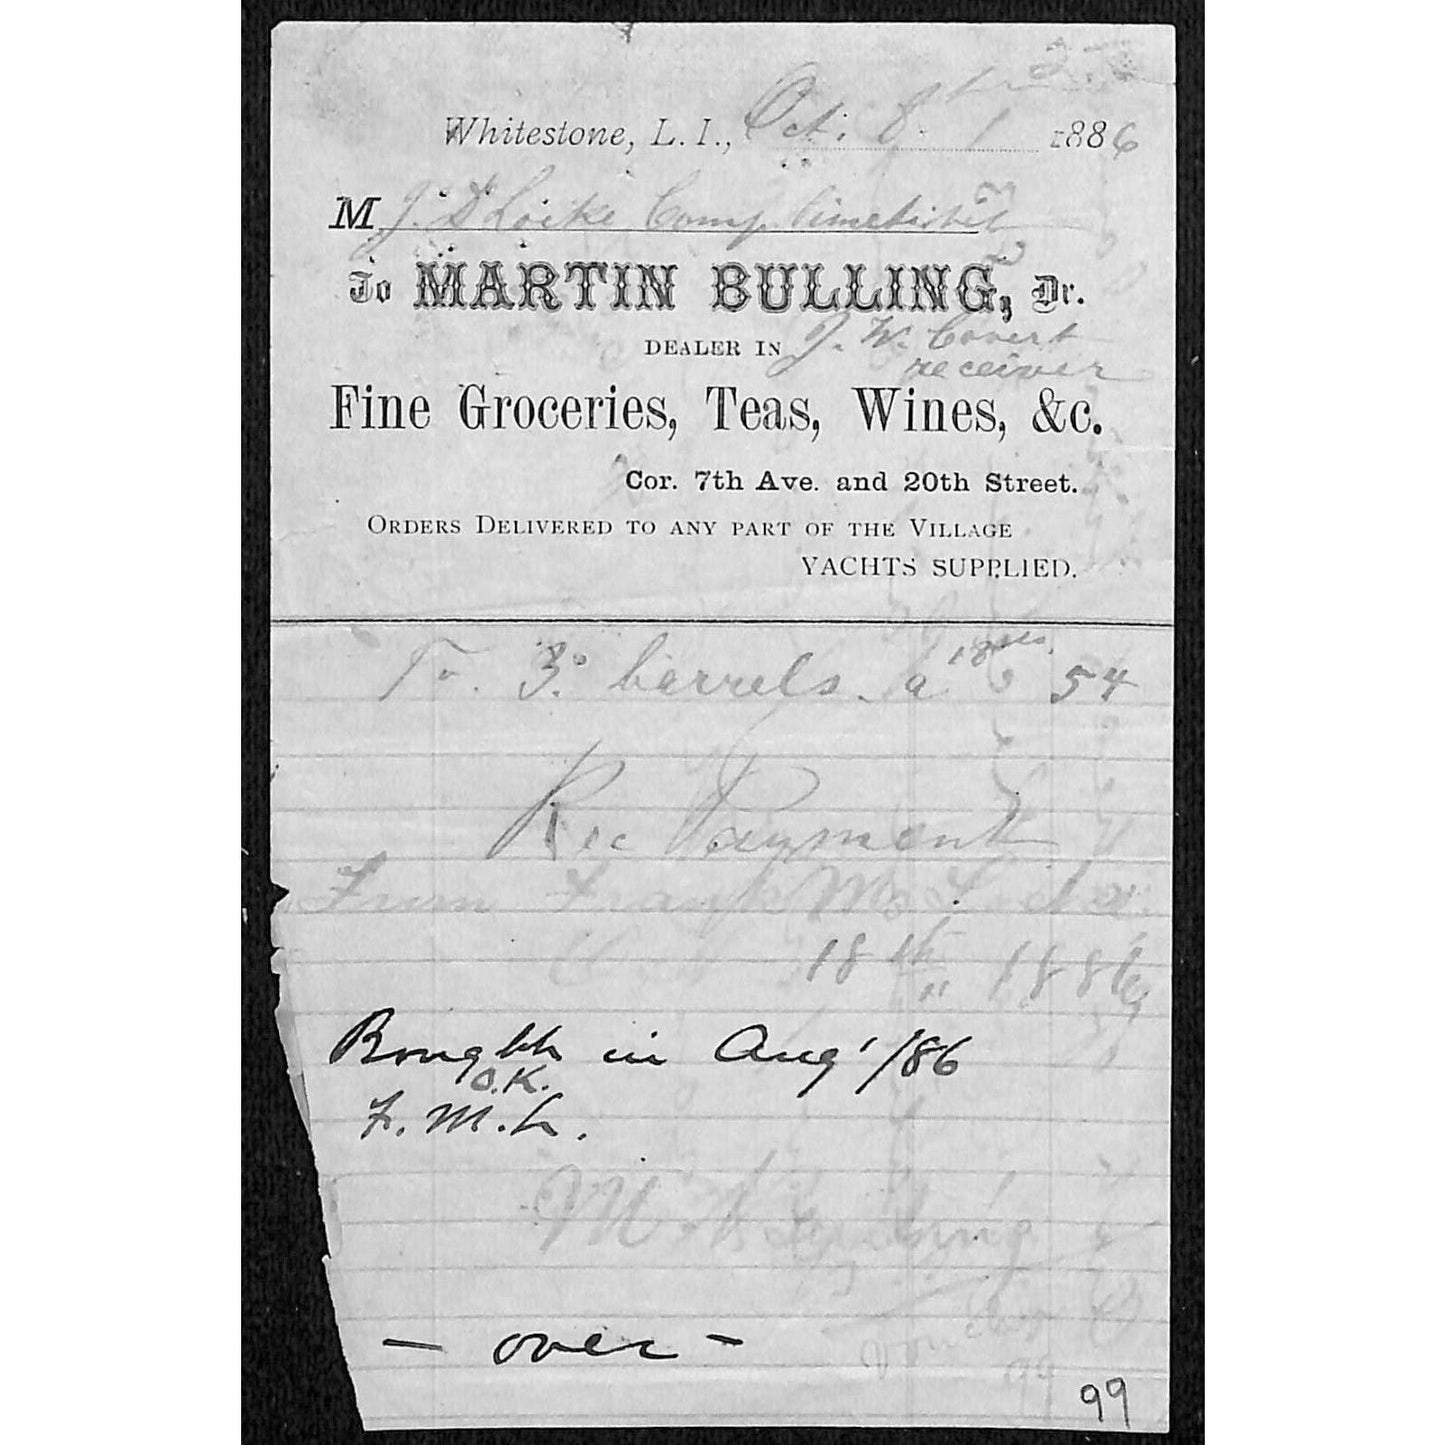 Whitestone, L. I., Oct. 8 1886
M J. D Locke Comp.
To MARTIN BULLING, Dr.
DEALER IN J. W. Covert
receiver
Fine Groceries, Teas, Wines, &c.
Cor. 7th Ave. and 20th Street.
ORDERS DELIVERED TO ANY PART OF THE VILLAGE
YACHTS SUPPLIED.
To. 3. barrels a 18 cts. 54
Rec Payment
From Frank M Locke
Oct 18th 1886
Bought in Aug'/86
O.K.
F. M. L.
- over -
99